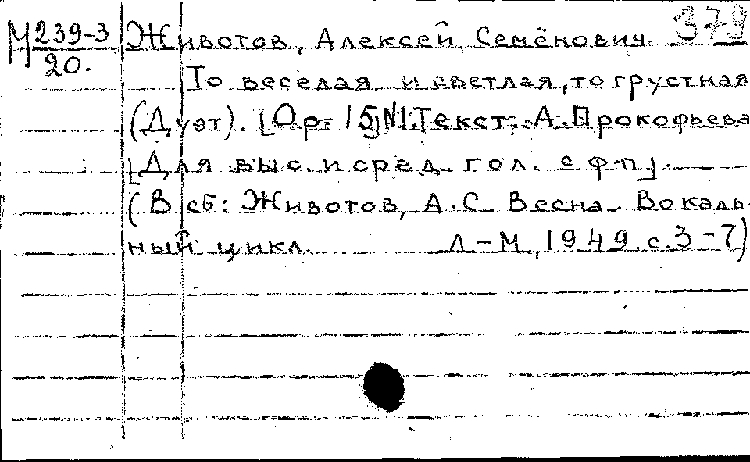 М 239-3 Животов, Алексей Семёнович. 379
20. То веселая и светлая, то грустная
(Дуэт). [Op. 15, №1. Текст: А. Прокофьева
[Для выс. и сред. гол. с ф-п].
(В сб: Животов, А.С. Весна. Вокаль-
ный цикл. Л-М, 1949 с. 3-7)